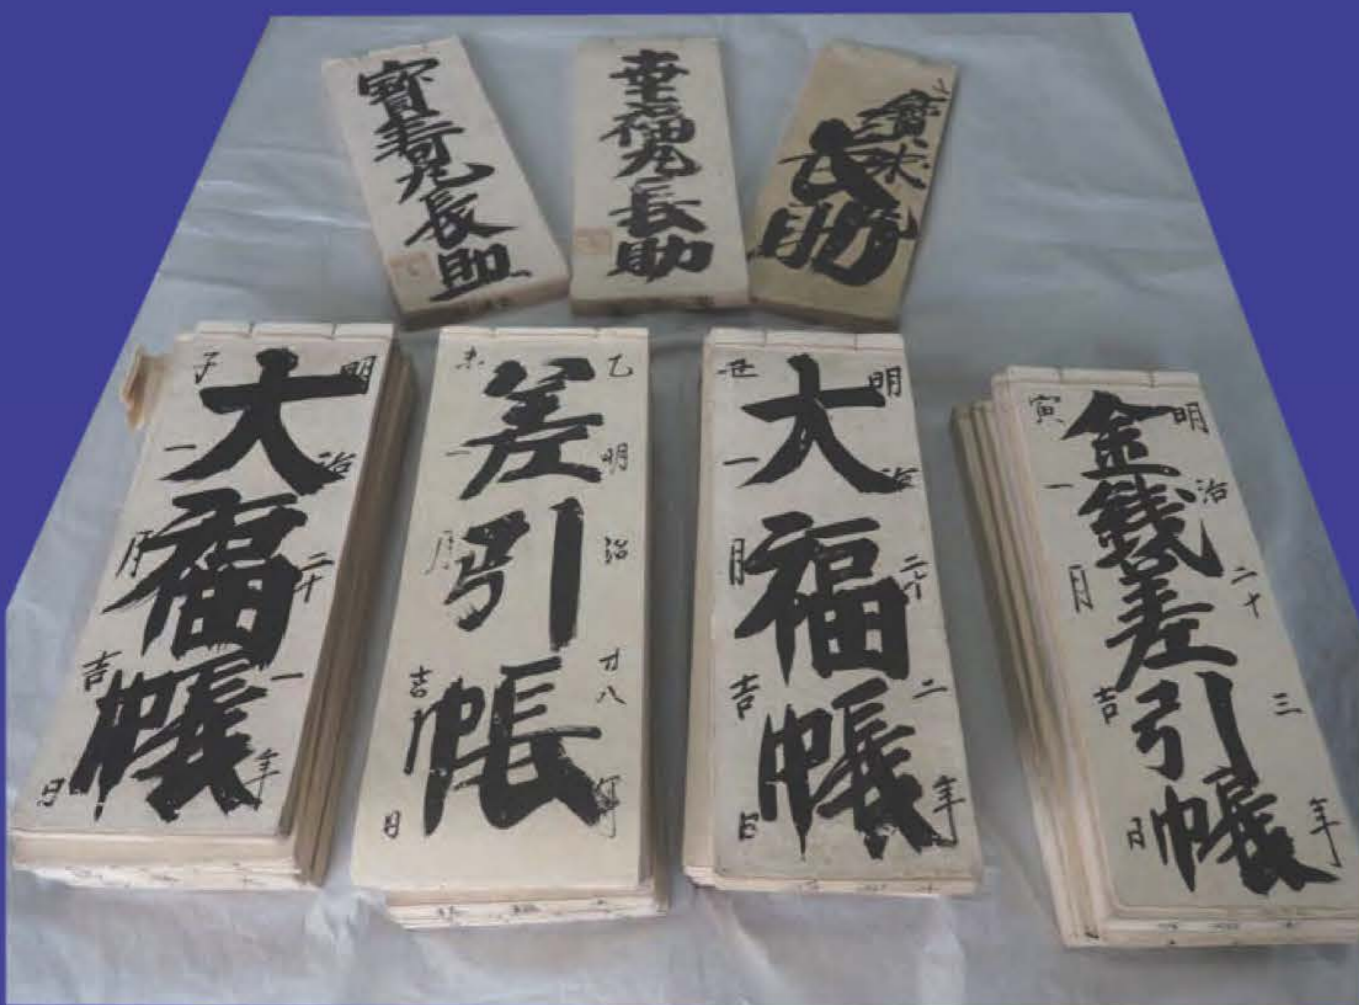 寳寿丸長助
福丸長助
長助
明治二十一年
大福帳
子一月吉日
乙明治廿八年
差引帳
未一月吉日
明治二十二年
大福帳
丑一月吉日
明治二十三年
金銭差引帳
寅一月吉日